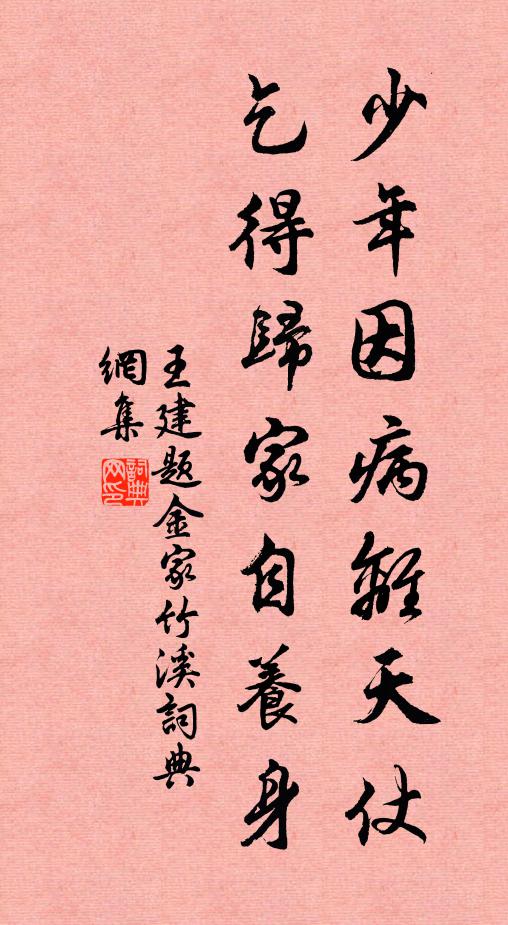 少年因病離天仗
乞得歸家自養身
王建題金家竹溪詞典
網集
詞典
网印